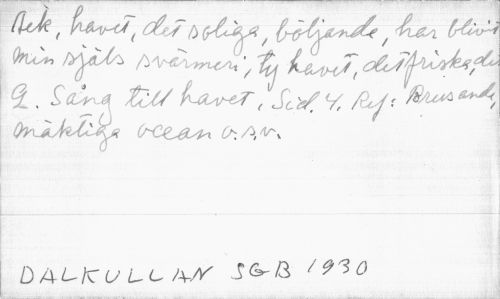 Ack, havet, det soliga, böljande, har blivit
min själs svärmeri, ty havet, det friska, de
Q. Sång till havet, Sid. 4. Ref: Brusande,
mäktiga ocean o.s.v.
DALKULLAN SGB 1930